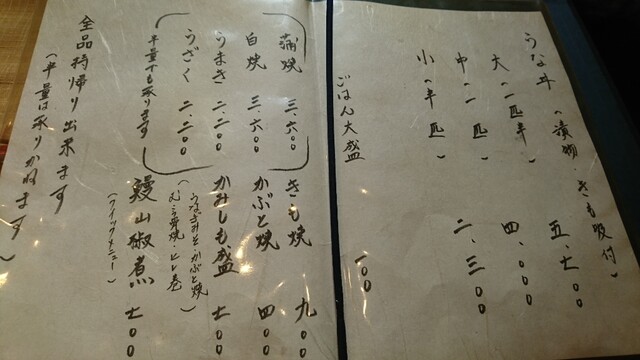 うな丼(漬物・きも吸付)
大(一匹半) 五、七〇〇
中(一匹) 四、〇〇〇
小(半匹) 二、三〇〇
ごはん大盛 一〇〇
蒲焼 三、六〇〇
白焼 三、六〇〇
うまき 二、二〇〇
うざく 二、二〇〇
半量でも承ります
きも焼 九〇〇
かぶと焼 四〇〇
かみしも盛 七〇〇
(うなぎみそかぶと焼
むら骨焼・ヒレ巻)
鰻山椒煮 七〇〇
(クイックメニュー)
全品持帰り出来ます
(半量は承りかねます)